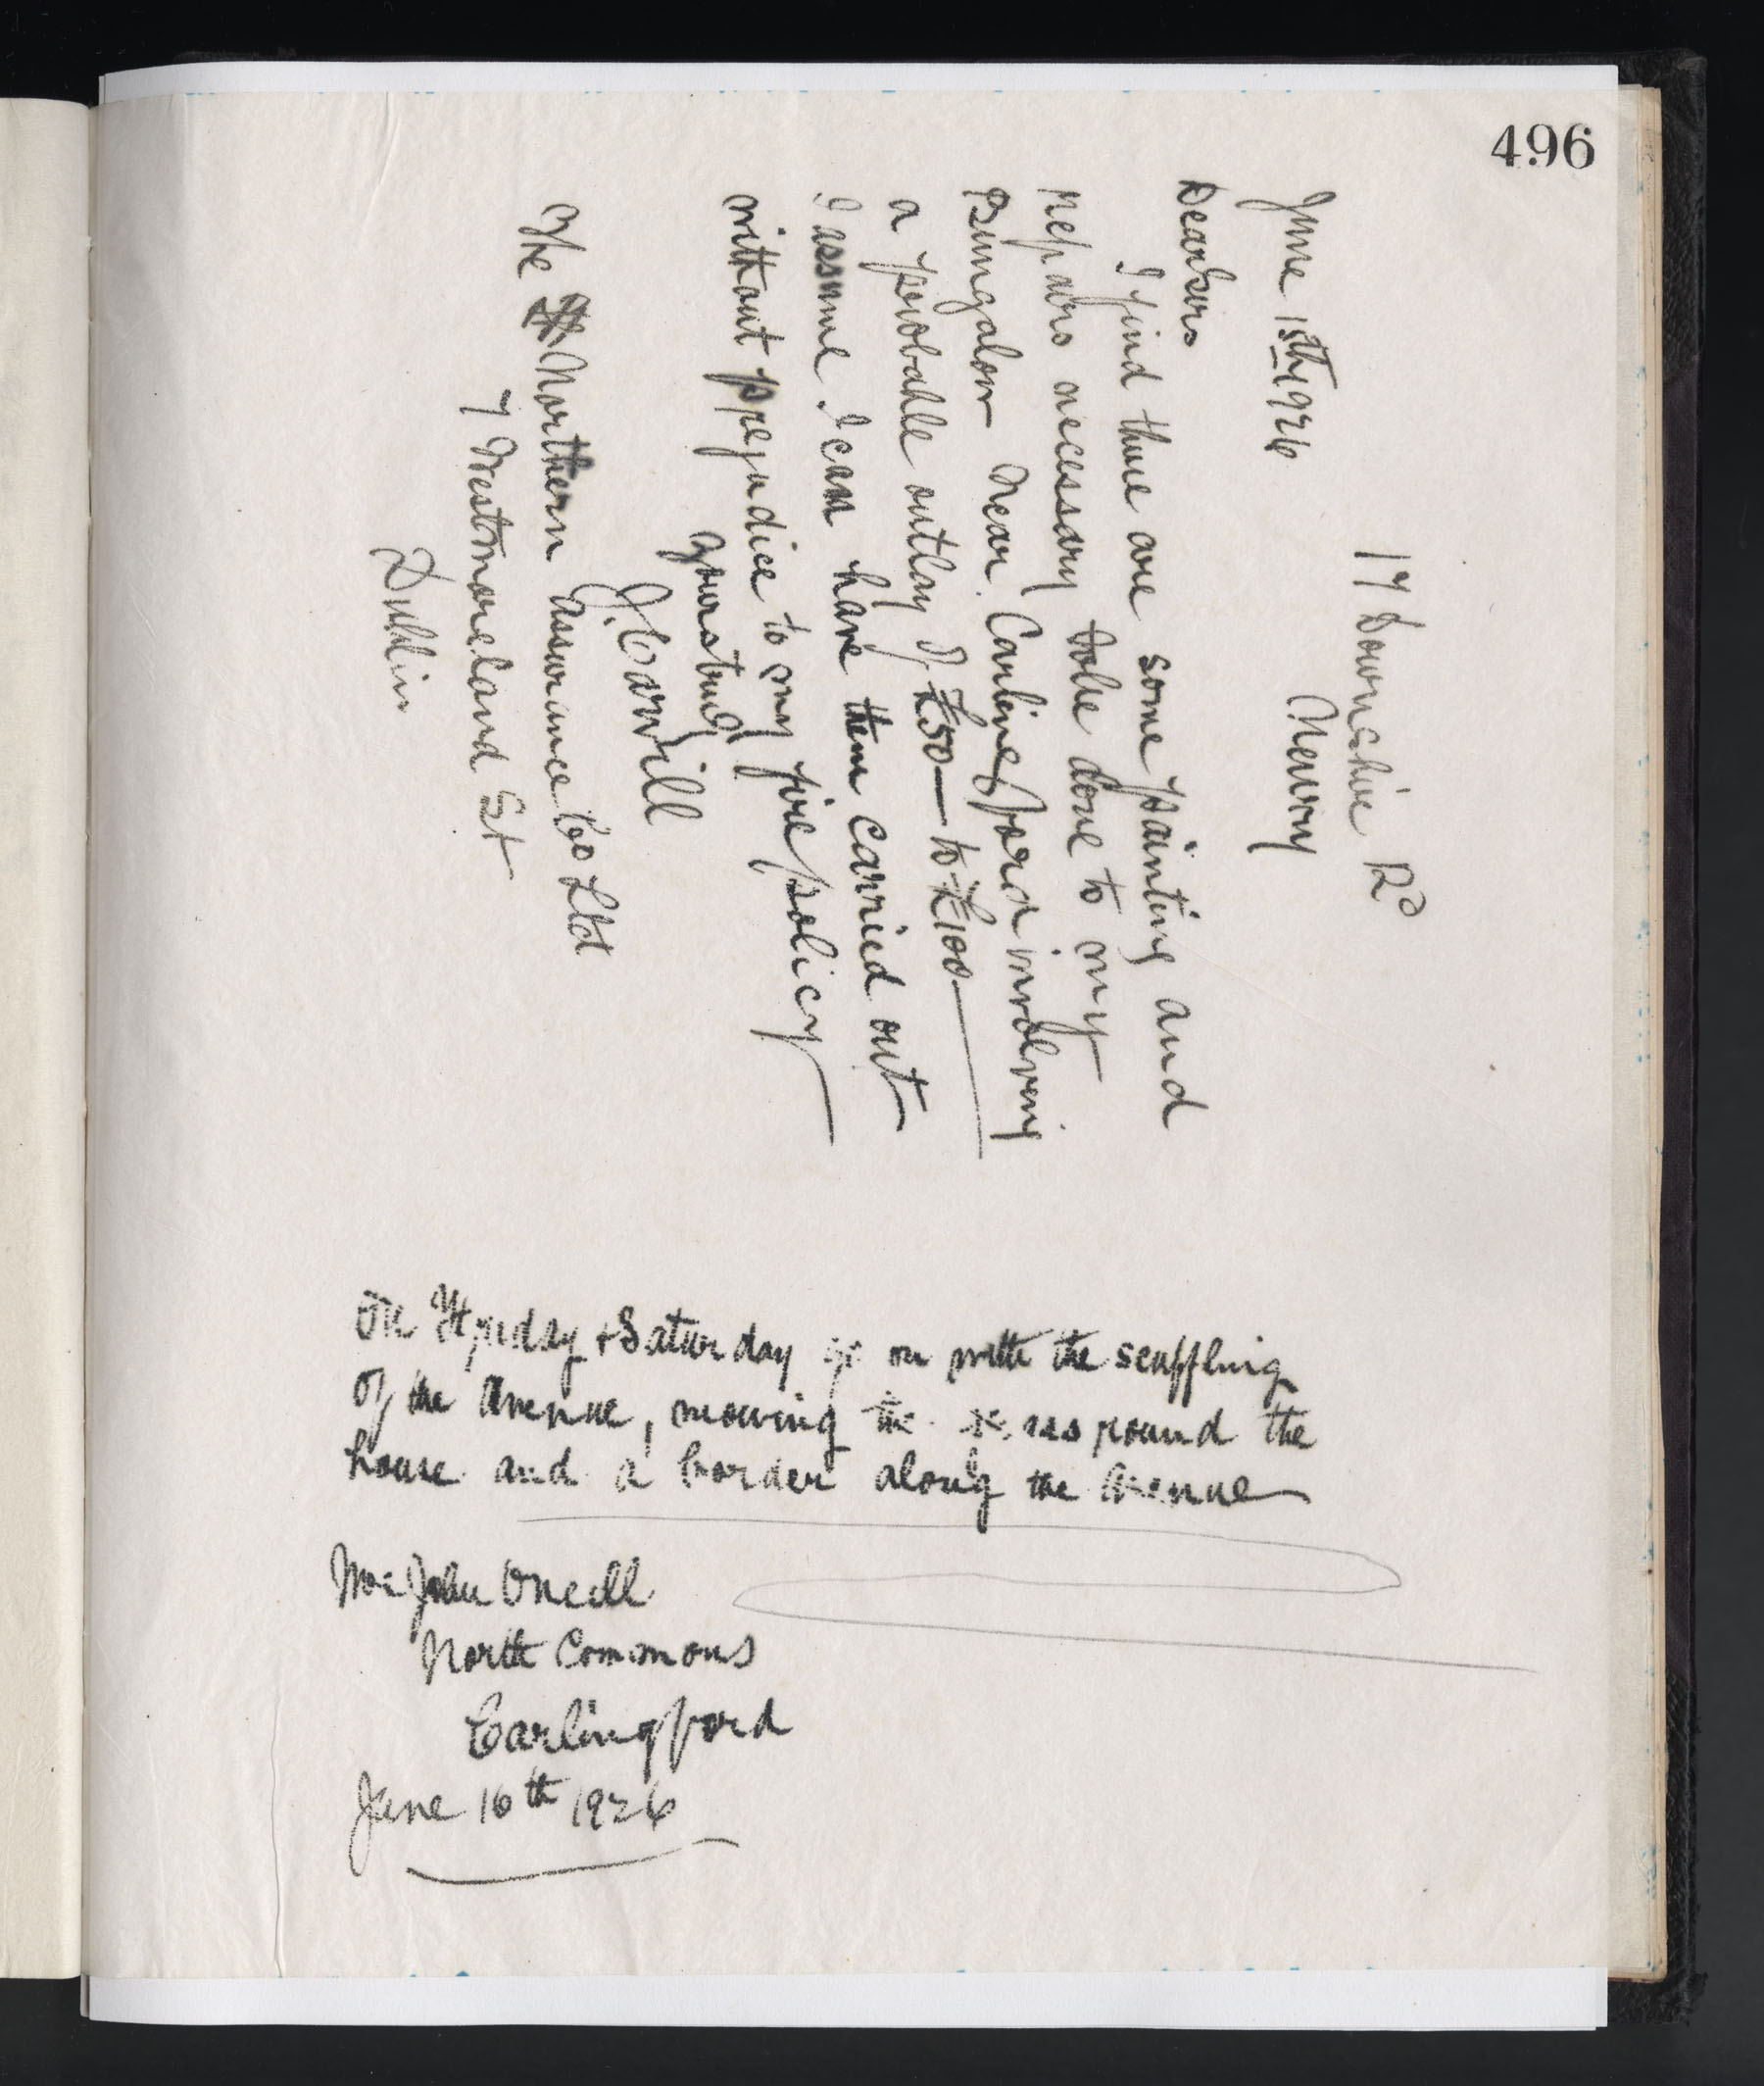 496
17 Downshire Rd
Newry
June 15th 1926
Dear Sirs
I find there are some painting and
repairs necessary to be done to my
Bungalow near Carlingford involving
a probable outlay of £50 — to £100 —
I assume I can have them carried out
without prejudice to my fire policy
Yours truly
J. Carvill
The Northern Assurance Co Ltd
7 Westmoreland St
Dublin
On & Saturday on with the scuffling
of the avenue, mowing the round the
house and a border along the avenue
Mr John Oneill
North Commons
Carlingford
June 16th 1926